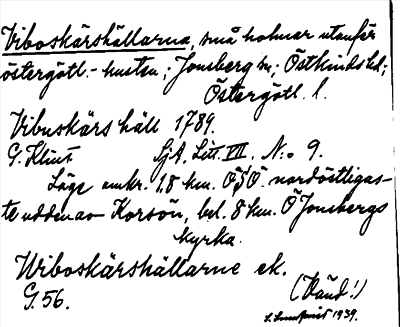 Viboskärshällarna, små holmar utanför
östergötl.-kusten; Jonsberg sn; Östkinds hd;
Östergötl. l.
Vibuskärs häll 1789.
G. Klint Sjk. Litt. VII. N:o 9.
Läge omkr. 1,8 km. OSO. nordöstligas-
te udden av Korsön, bel. 8 km. Ö Jonsbergs
kyrka.
Wiboskärshällarne ek.
G. 56. (Vänd!)
1939.